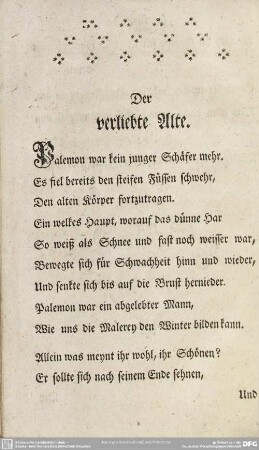 Der
verliebte Alte.
Palemon war kein junger Schäfer mehr.
Es fiel bereits den steifen Füssen schwehr,
Den alten Körper fortzutragen.
Ein welkes Haupt, worauf das dünne Har
So weiß als Schnee und fast noch weisser war,
Bewegte sich für Schwachheit hinn und wieder,
Und senkte sich bis auf die Brust hernieder.
Palemon war ein abgelebter Mann,
Wie uns die Malerey den Winter bilden kann.
Allein was meynt ihr wohl, ihr Schönen?
Er sollte sich nach seinem Ende sehnen,
Und
DFG